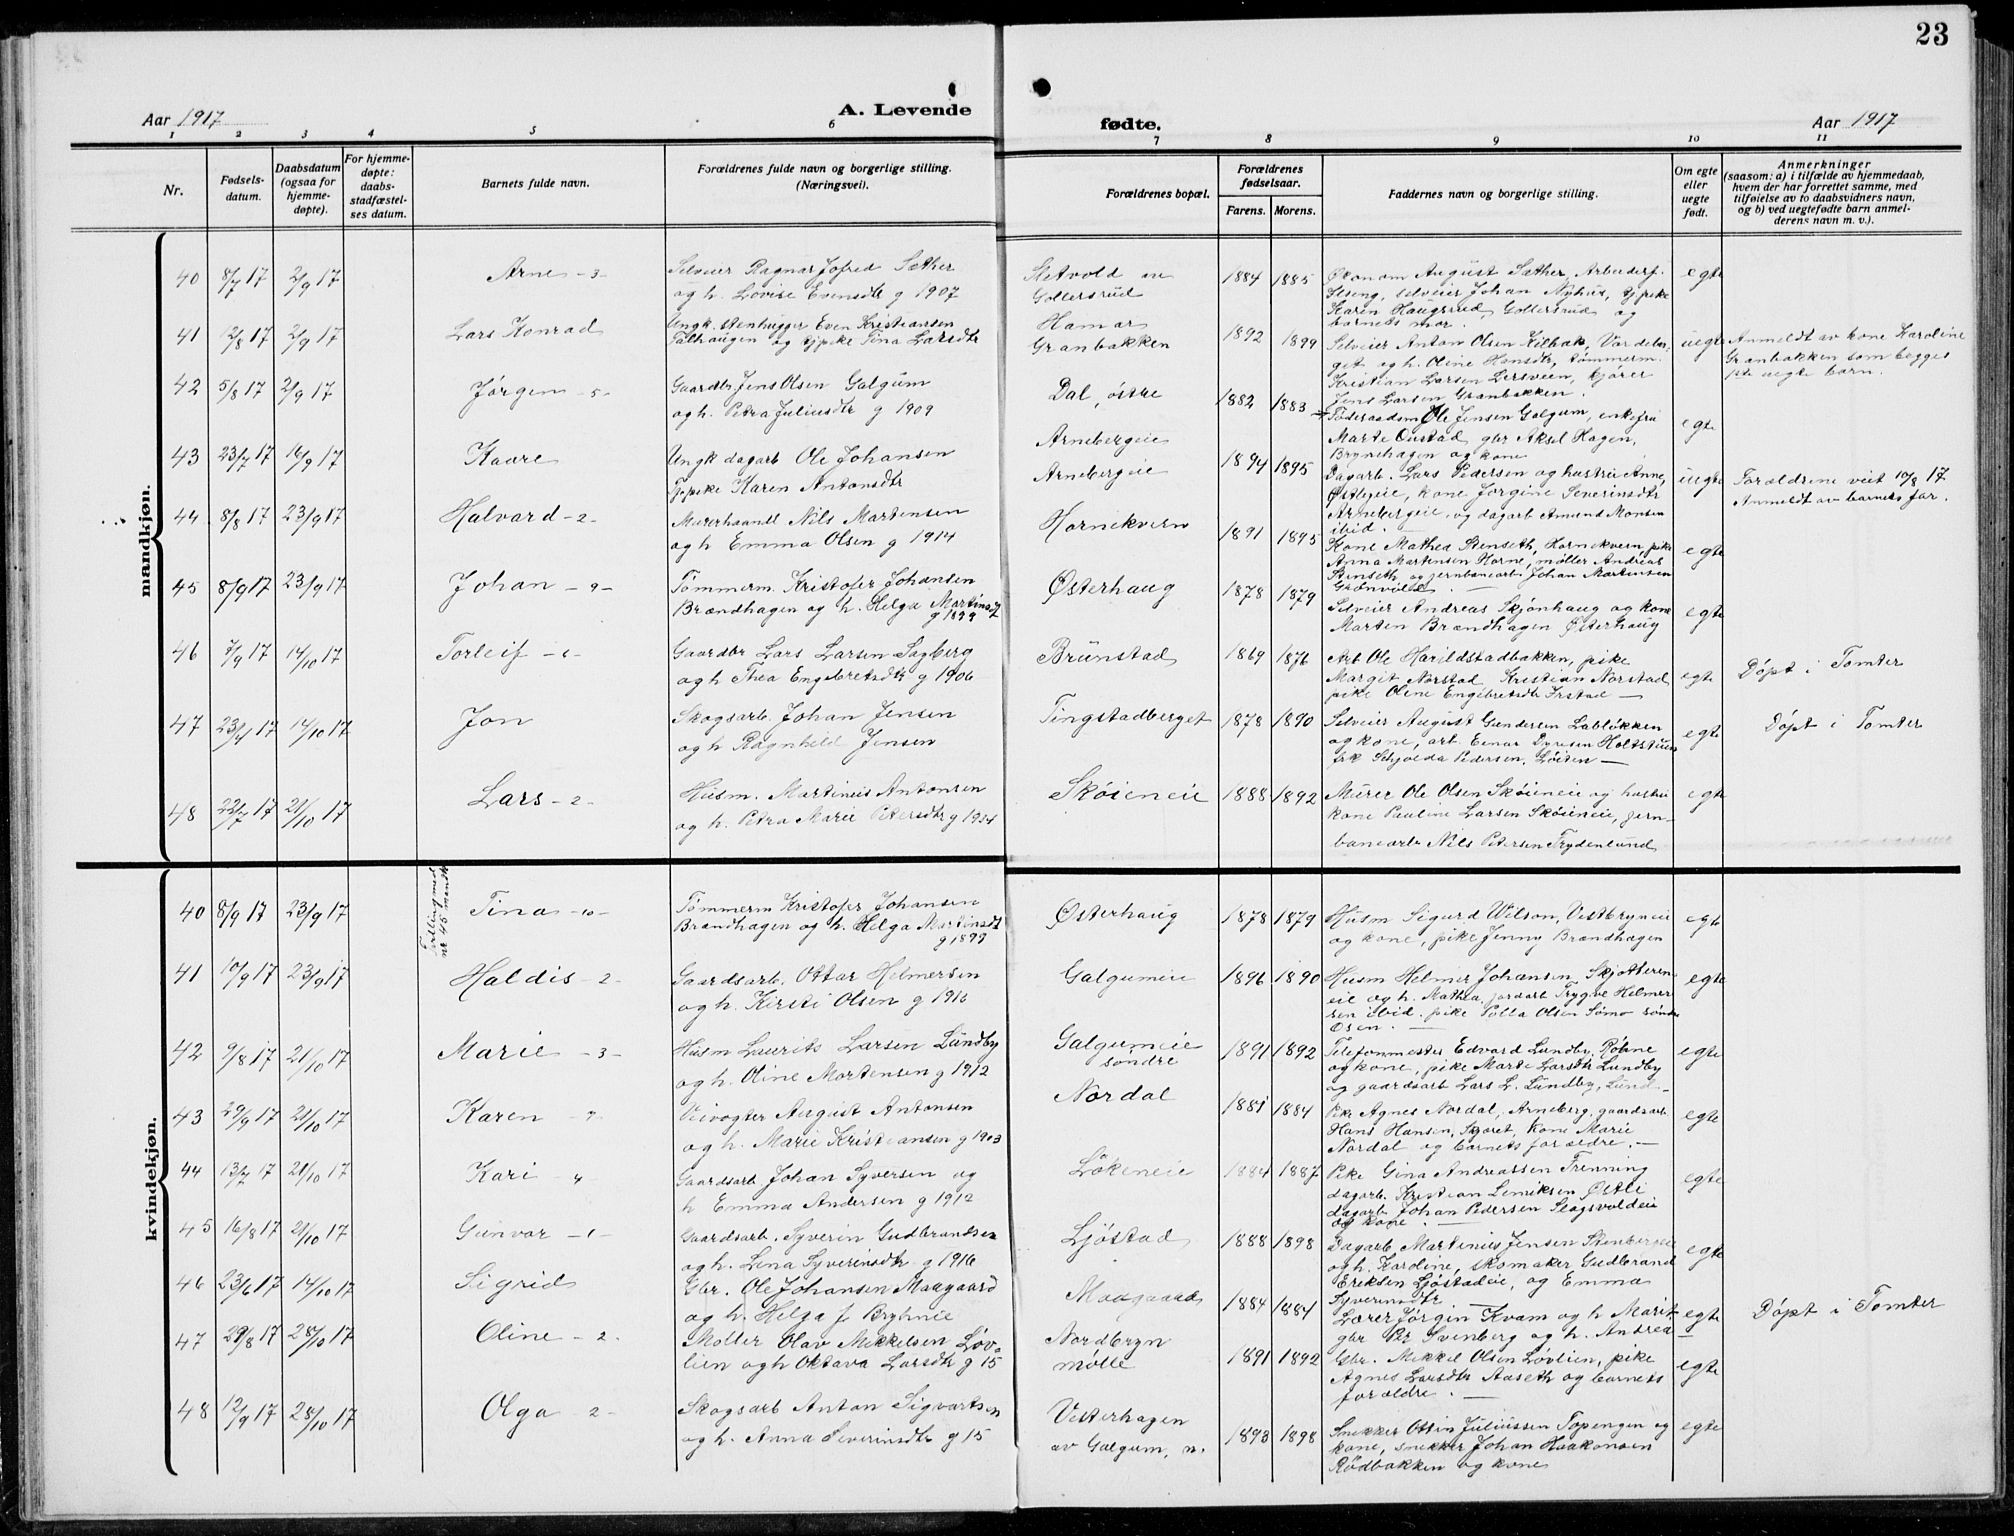 23
Aar 1917
A. Levende
fødte.
Aar 1917
1 2 3 4 5 6 7 8 9 10 11
Nr.
Fødsels-
datum.
Daabsdatum
(ogsaa for
hjemme-
døpte).
For hjemme-
døpte:
daabs-
stadfæstel-
ses datum.
Barnets fulde navn.
Forældrenes fulde navn og borgerlige stilling.
(Næringsvei).
Forældrenes bopæl.
Forældrenes
fødselsaar.
Farens. Morens.
Faddernes navn og borgerlige stilling.
Om egte
eller
uegte
født.
Anmerkninger
(saasom: a) i tilfælde av hjemmedaab,
hvem der har forrettet samme, med
tilføielse av to daabsvidners navn,
og b) ved uegtefødte barn anmel-
derens navn m. v.).
mandkjøn.
40 8/7 17 2/9 17 Arne - 3 -
Selveier Ragnar Jofred Sæther
og h. Lovise Evensdtr g 1907
Setvold av
Gollersrud
1884 1885
Økonom August Sæther, Arbeiderf.
Ilseng, selveier Johan Nyhus, tjpike
Karen Haugsrud Gollersrud og
barnets mor.
egte
41 12/8 17 2/9 17 Lars Konrad
Ungk. stenhugger Even Kristiansen
Galhaugen og tjpike Tina Larsdtr
Hamar
Granbakken
1892 1899
Selveier Anton Olsen Kilbak, Vardebær-
get og h. Oline Hansdtr, tømmerm.
Kristian Larsen Lersveen, kjører
Jens Larsen Granbakken.
uegte
Anmeldt av kone Karoline
Granbakken som begges
1ste uegte barn.
42 5/8 17 2/9 17 Jørgen - 5 -
Gaardbr Jens Olsen Galgum
og h. Petra Juliusdtr g 1909
Dal, østre
1882 1883
Føderaadsm Ole Jensen Galgum, enkefru
Marte Onstad gbr Aksel Hagen,
Brynehagen og kone
egte
43 23/7 17 16/9 17 Kaare
Ungk dagarb Ole Johansen
Tjpike Karen Antonsdtr
Arnebergeie
Arnebergeie
1894 1895
Dagarb. Lars Pedersen og hustru Anne,
Østbyeie, kone Jørgine Severinsdtr
Arnebergeie, og dagarb Amund Monsen
ibid.
uegte
Forældrene viet 10/8 17
Anmeldt av barnets far.
44 8/8 17 23/9 17 Halvard - 2 -
Murerhaandl Nils Martensen
og h Emma Olsen g 1914
Hornekvern
1891 1895
Kone Mathea Stenseth, Hornekvern, pike
Anna Martensen Horne, møller Andreas
Stenseth og jernbanearb Johan Martensen
Grønvold. —
egte
45 8/9 17 23/9 17 Johan - 9 -
Tømmerm. Kristofer Johansen
Brændhagen og h. Helga Martinsdtr
g 1899
Østerhaug
1878 1879
Selveier Andreas Skjønhaug og kone
Marten Brændhagen Østerhaug
egte
46 7/9 17 14/10 17 Torleif - 1 -
Gaardbr Lars Larsen Sagberg
og h Thea Engebretsdtr g 1906
Brunstad
1869 1876
Arb Ole Harildstadbakken, pike
Margit Norstad, Kristian Norstad
pike Olene Engebretsdtr Irstad —
egte
Døpt i Tomter
47 23/4 17 14/10 17 Jon
Skogsarb. Johan Jensen
og h Ragnhild Jensen
Tingstadberget
1878 1890
Selveier August Gundersen Labløkken
og kone, arb Einar Dyresen Holtstuen
frk Schjolda Pedersen, Løiten —
egte
Døpt i Tomter
48 22/7 17 21/10 17 Lars - 2 -
Husm. Martinius Antonsen
og h. Petra Marie Petersdtr g 1914
Skøieneie
1888 1892
Murer Ole Olsen Skøieneie og hustru
kone Pauline Larsen Skøieneie, jern-
banearb Nils Petersen Frydenlund
egte
kvindekjøn.
40 8/9 17 23/9 17
Tvilling med
nr 45 mandk
Tina - 10 -
Tømmerm Kristofer Johansen
Brændhagen og h. Helga Martinsdtr
g 1899
Østerhaug
1878 1879
Husm Sigurd Wilson, Vestbryneie
og kone, pike Jenny Brændhagen
egte
41 10/9 17 23/9 17 Haldis - 2 -
Gaardsarb. Ottar Helmersen
og h. Kirsti Olsen g 1916
Galgumeie
1896 1890
Husm Helmer Johansen, Skjotteren-
eie og h. Mathea, jordarb Trygve Helmer
sen ibid. pike Tolla Olsen Somo søndre
Osen. —
egte
42 9/8 17 21/10 17 Marie - 3 -
Husm Laurits Larsen Lundby
og h. Oline Mortensen g 1912
Galgumeie
søndre
1891 1892
Telefonmester Edvard Lundby, Røhne
og kone, pike Marte Larsdtr Lundby
og gaardsarb Lars L. Lundby, Lund. —
egte
43 29/9 17 21/10 17 Karen - 7 -
Veivogter August Antonsen
og h. Marie Kristiansen g 1903
Nordal
1881 1884
Pike Agnes Nordal, Arneberg, gaardsarb
Hans Hansen, Skjøret, Kone Marie
Nordal og barnets forældre. —
egte
44 13/7 17 21/10 17 Kari - 4
Gaardsarb Johan Syversen og
h Emma Andersen g 1912
Løkeneie
1884 1887
Pike Gina Andreassen Frenning
dagarb. Kristian Lemiksen Østli
dagarb Johan Pedersen Slagsvoldeie
og kone. —
egte
45 16/8 17 21/10 17 Gunvor - 1 -
Gaardsarb. Syverin Gudbrandsen
og h. Lina Syverinsdtr g 1916
Ljøstad
1888 1898
Dagarb. Martinius Jensen Stenbergeie
og h. Karoline, skomaker Gudbrand
Eriksen Ljøstadeie, og Emma
Syverinsdtr —
egte
46 23/6 17 14/10 17 Sigrid
Gbr. Ole Johansen Maagaard
og h. Helga f Bryhnie
Maagaard
1884 1884
Lærer Jørgin Kvam og h Marit,
gbr Per Svenberg og h. Andrea
egte
Døpt i Tomter
47 29/8 17 28/10 17 Oline - 2 -
Møller Olav Mikkelsen Løv-
lien og h Oktava Larsdtr g 15
Nordbryn
mølle
1891 1892
Gbr. Mikkel Olsen Løvlien, pike
Agnes Larsdtr Aaseth og barnets
forældre. —
egte
48 12/9 17 28/10 17 Olga - 2 -
Skogsarb Anton Sigvartsen
og h. Anna Severinsdtr g 15
Vesterhagen
av Galgum, n.
1893 1898
Snekker Ottin Juliussen Topengen og
kone, snekker Johan Haakonsen
Rødbakken og kone
egte